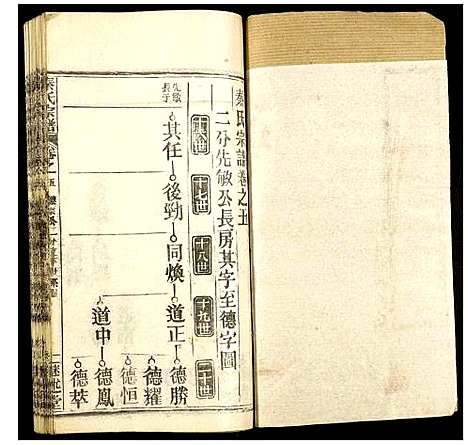 秦氏宗譜卷之五
二分先敏公長房其字至德字圖
十六世
十七世
十八世
十九世
二十世
先敏長子
其任 後勁 同煥 道正 德勝
德耀
德恒
道中 德鳳
德萃
秦氏宗譜 卷之五